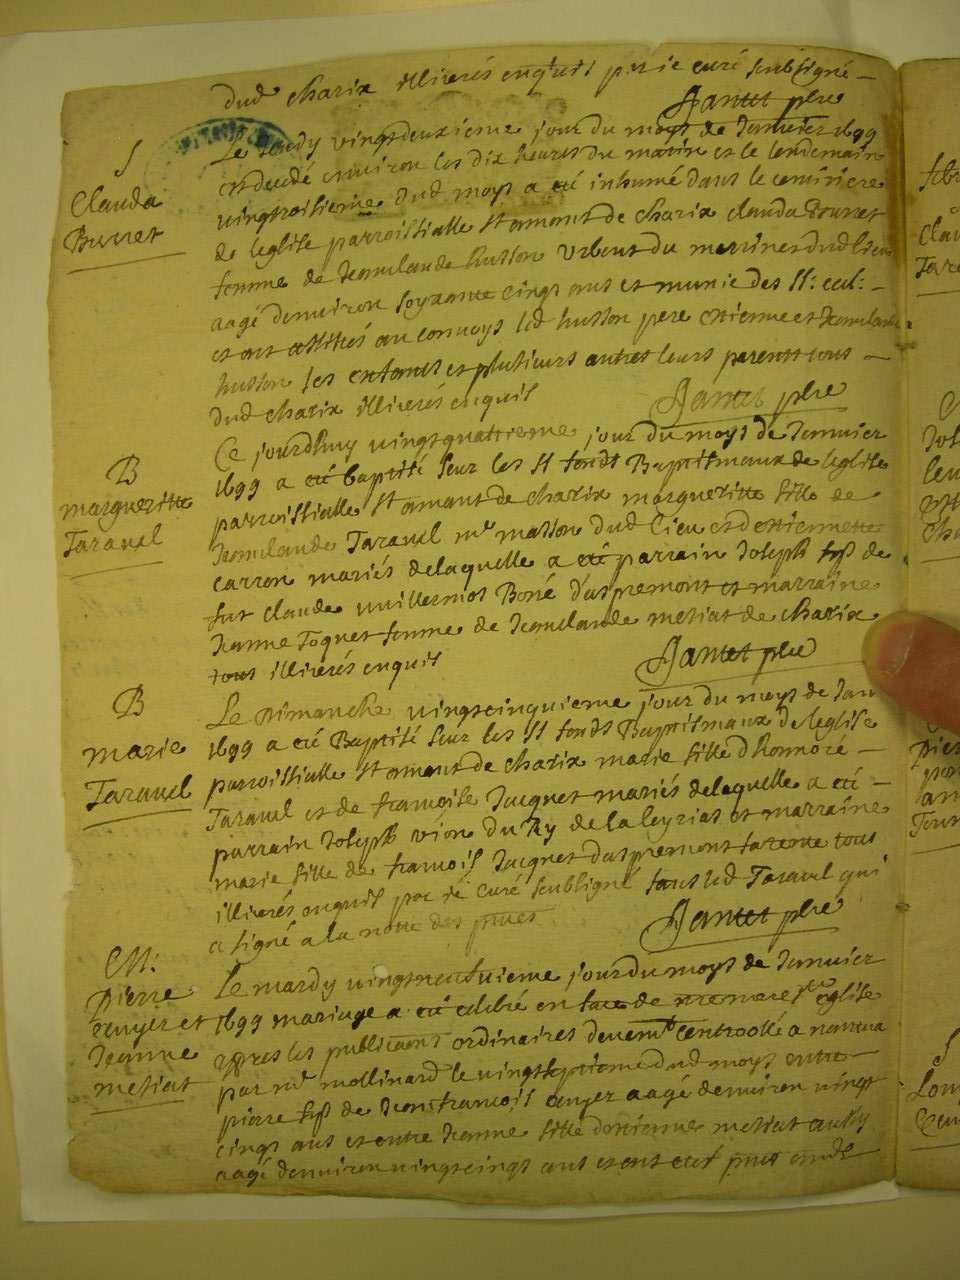 dud charix illiterés enquis par ie curé soubsigné
Jantet pbre
S
Clauda
Burret
Le jeudy vingtdeuxieme jour du moys de Janvier 1699
est decedé environ les dix heures du matin et le lendemain
vingtroisieme dud moys a eté inhumé dans le cemitiere
de leglise parroissialle St amant de charix clauda Bourret
femme de Jeanclaude husson
aagé denviron soyxante cinqs ans et munie des St:
et ont assistés au convoys led husson pere etienne et Jeanclaude
husson ses enfants et plusieurs autres leurs parents tous
dud charix illiterés enquis
Jantet pbre
B
margueritte
Taravel
Ce jourdhuy vingtquatrieme jour du moys de Janvier
1699 a eté baptisé sur les St fonds Baptismaux de leglise
parroissialle St amant de charix margueritte fille de
Jeanclaude Taravel mre masson dud lieu et destiennette
carron mariés delaquelle a eté parrain Joseph fils de
fut claude vuillermos Boné daspremont et marraine
Jeanne Toquet femme de Jeanclaude metiat de charix
tous illiterés enquis
Jantet pbre
B
marie
Taravel
Le Dimanche vingtcinquieme jour du moys de Jan
1699 a eté Baptisé sur les St fonds Baptismaux de leglise
parroissialle St amant de charix marie fille dhonnoré
Taravel et de francoise Jacquet mariés delaquelle a eté
parrain Joseph vion du Ry de laleyriat et marraine
marie fille de francois Jacquet daspremont tous
illiterés enquis par ie curé soubsigné sauf led Taravel qui
a signé a la notte des
Jantet pbre
M:
Pierre
et
Jeanne
metiat
Le mardy jour du moys de Janvier
1699 mariage a eté celebré en face de nre mere ste eglise
apres les publicaons ordinaires devemt controollé a nantua
par mr mollinard le vingtseptieme dud moys entre
pierre fils de Jeanfrancois aagé denviron vingt
cinqs ans et entre Jeanne fille detienne metiat
aagé denviron vingtcinqs ans et ont